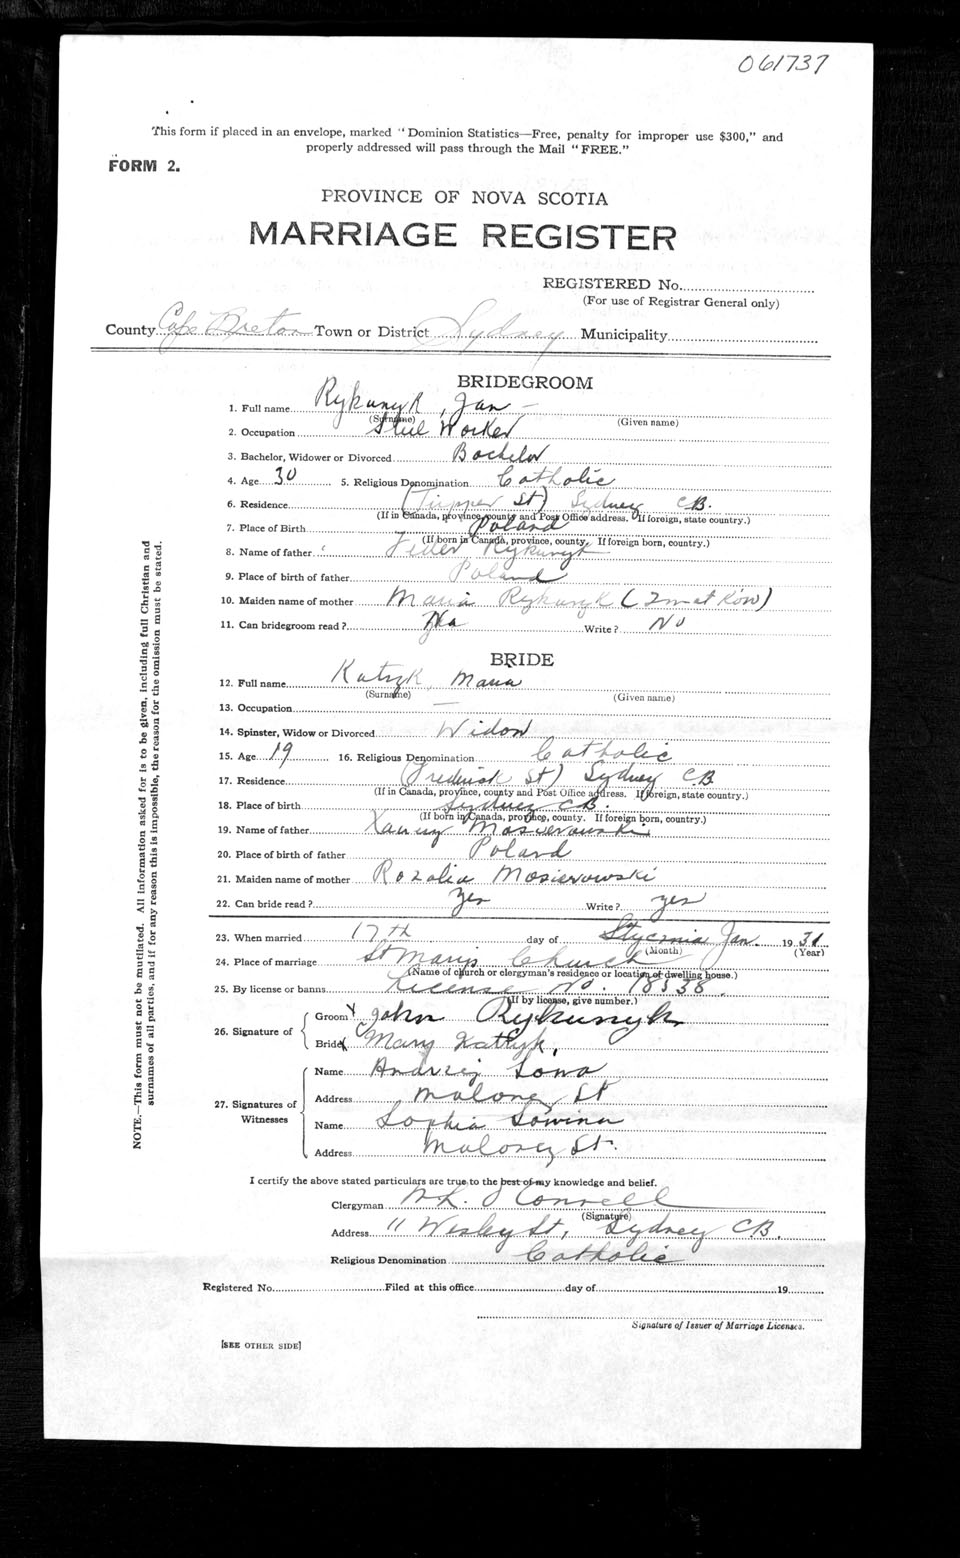 061737
This form if placed in an envelope, marked "Dominion Statistics—Free, penalty for improper use $300," and
properly addressed will pass through the Mail "FREE."
FORM 2.
PROVINCE OF NOVA SCOTIA
MARRIAGE REGISTER
REGISTERED No.
(For use of Registrar General only)
County Cape Breton Town or District Sydney Municipality
BRIDEGROOM
1. Full name Rykunyk, Jan
(Surname) (Given name)
2. Occupation Steel Worker
3. Bachelor, Widower or Divorced Bachelor
4. Age 30 5. Religious Denomination Catholic
6. Residence (Tupper St) Sydney CB.
(If in Canada, province, county and Post Office address. If foreign, state country.)
7. Place of Birth Poland
(If born in Canada, province, county. If foreign born, country.)
8. Name of father Fedor Rykunyk
9. Place of birth of father Poland
10. Maiden name of mother Maria Rykunyk
11. Can bridegroom read? No Write? No
BRIDE
12. Full name Katryk, Maria
(Surname) (Given name)
13. Occupation —
14. Spinster, Widow or Divorced Widow
15. Age 19 16. Religious Denomination Catholic
17. Residence (Frederick St) Sydney CB
(If in Canada, province, county and Post Office address. If foreign, state country.)
18. Place of birth Sydney CB.
(If born in Canada, province, county. If foreign born, country.)
19. Name of father Mosierowski
20. Place of birth of father Poland
21. Maiden name of mother Rozalia Mosierowski
22. Can bride read? Yes Write? yes
23. When married 17th day of Stycznia Jan. 1931
(Month) (Year)
24. Place of marriage St Marys Church
(Name of church or clergyman's residence or location of dwelling house.)
25. By license or banns License No. 18538.
(If by license, give number.)
26. Signature of
Groom X John Rykunyk
Bride Mary Katryk.
27. Signatures of
Witnesses
Name Andrzej Sowa
Address Maloney St
Name Sophia Sowina
Address Maloney St.
I certify the above stated particulars are true to the best of my knowledge and belief.
Clergyman O'Connell
(Signature)
Address 11 Wesley St, Sydney CB.
Religious Denomination Catholic
Registered No. Filed at this office day of 19
Signature of Issuer of Marriage Licenses.
[SEE OTHER SIDE]
NOTE.—This form must not be mutilated. All information asked for is to be given, including full Christian and
surnames of all parties, and if for any reason this is impossible, the reason for the omission must be stated.